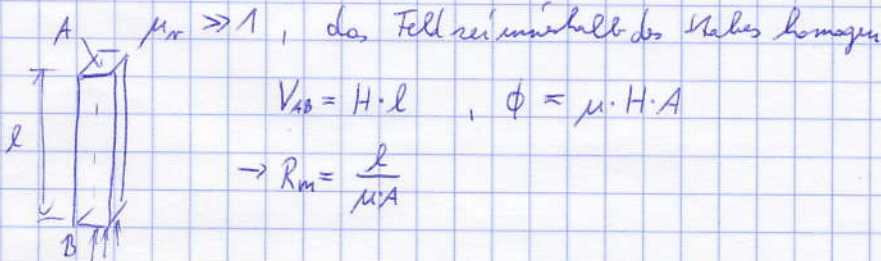 A μr >> 1, das Feld sei innerhalb des Stabes homogen
l V_AB = H · l , ϕ = μ · H · A
→ Rm = l / μ·A
B